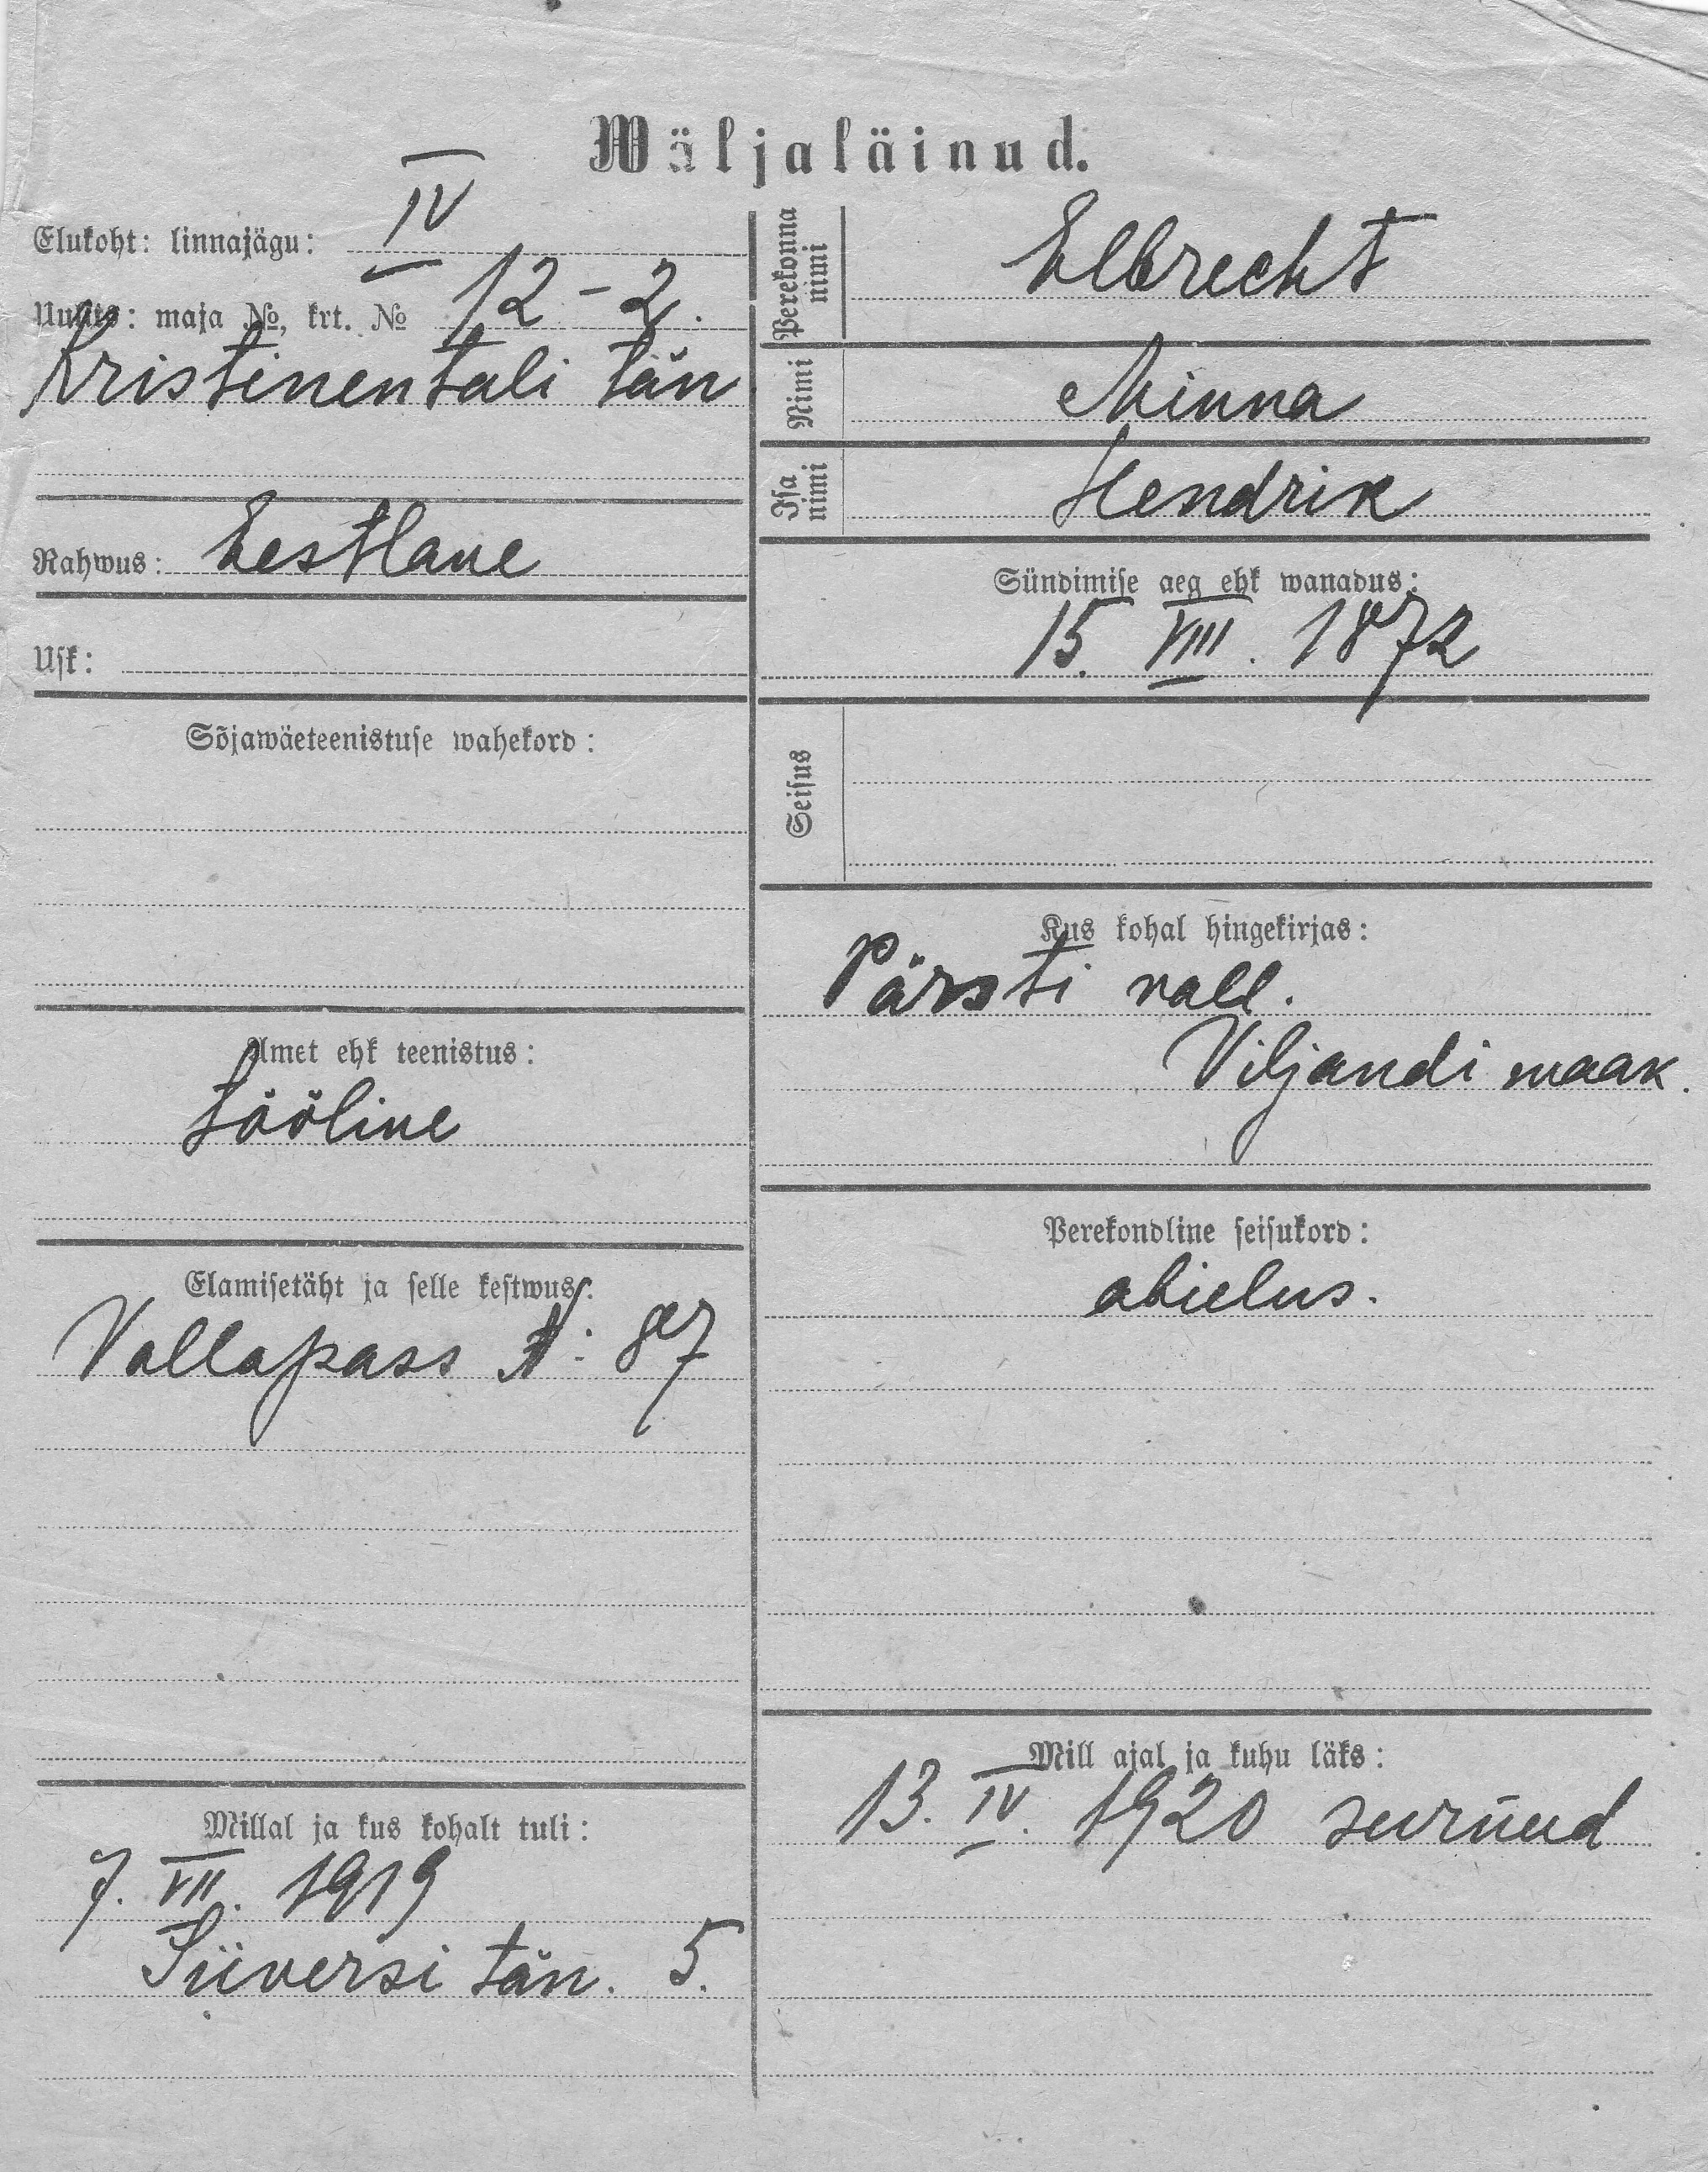 Wäljaläinud.
Elukoht: linnajägu: IV
Uulits: maja №, krt. № 12 - 2.
Kristinentali tän
Rahwus: Eestlane
Usk:
Sõjawäeteenistuse wahekord:
Amet ehk teenistus:
tööline
Elamisetäht ja selle kestwus:
Vallapass №: 87
Millal ja kus kohalt tuli:
7. VII. 1919
Siiversi tän. 5.
Perekonna nimi
Elbrecht
Nimi
Minna
Isa nimi
Hendrik
Sündimise aeg ehk wanadus:
15. VIII. 1872
Seisus
Kus kohal hingekirjas:
Pärsti vall.
Viljandi maak.
Perekondline seisukord:
abielus.
Mill ajal ja kuhu läks:
13. IV. 1920 surnud